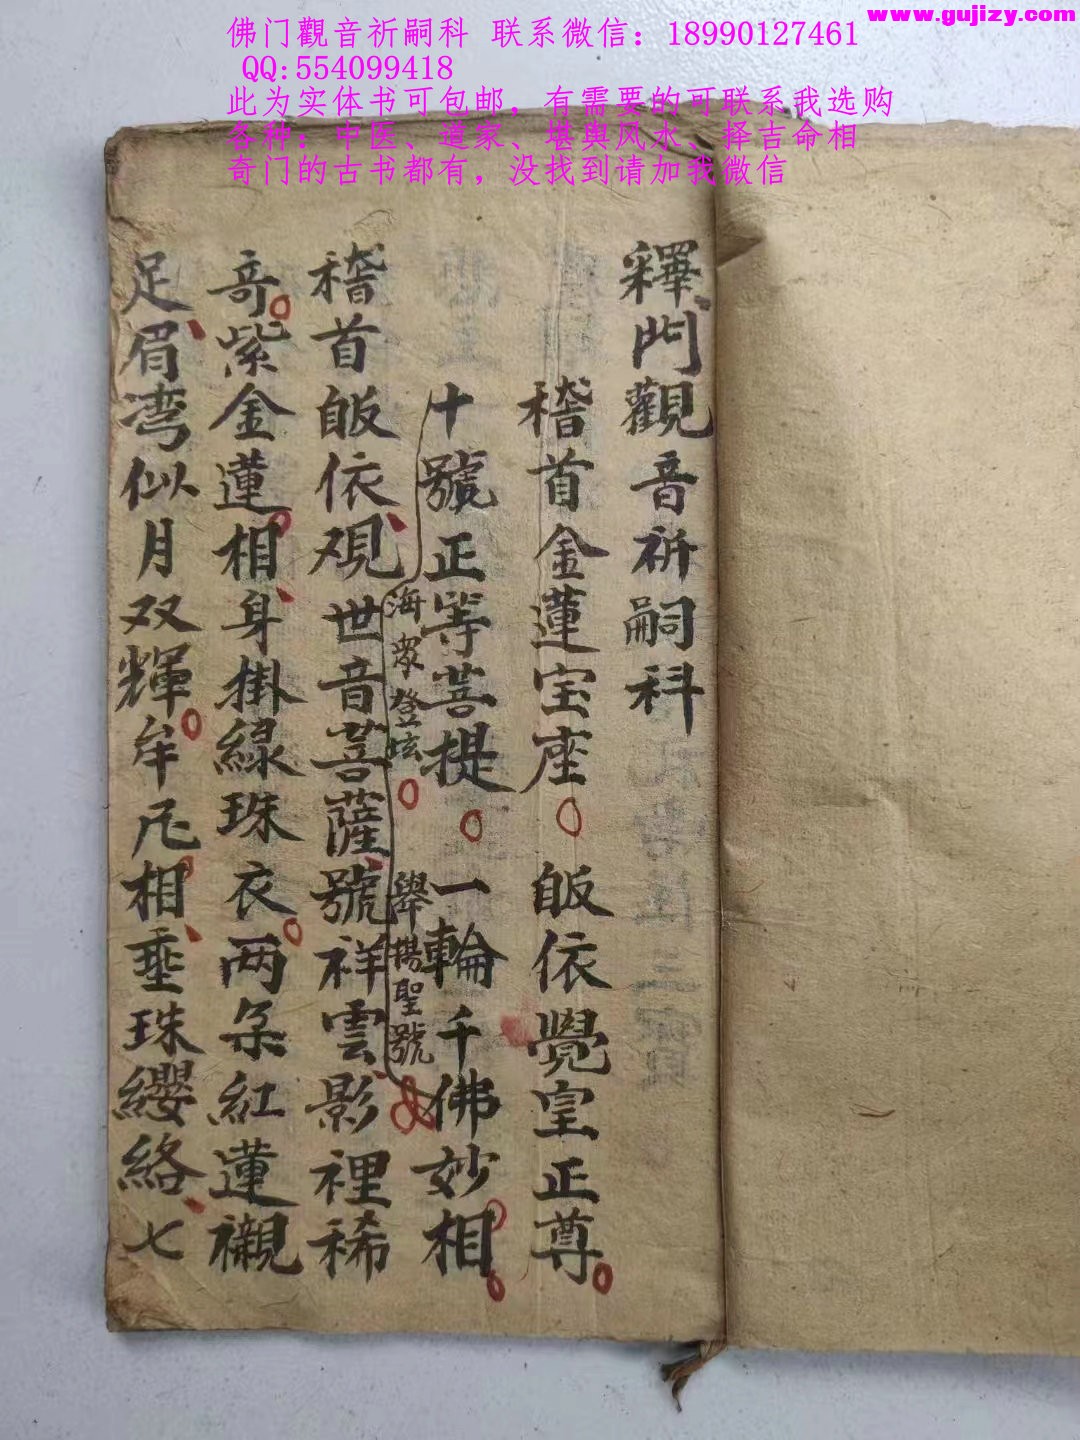 www.gujizy.com
佛门觀音祈嗣科 联系微信：18990127461
QQ:554099418
此为实体书可包邮，有需要的可联系我选购
各种：中医、道家、堪舆风水、择吉命相
奇门的古书都有，没找到请加我微信
釋門觀音祈嗣科
稽首金蓮宝座 皈依覺皇正尊
十號正等菩提 一輪千佛妙相
海眾登坛 舉揚聖號
稽首皈依观世音菩薩號祥雲影裡稀
奇紫金蓮相身掛綠珠衣两朵紅蓮襯
足眉湾似月双輝牟尼相垂珠纓絡七